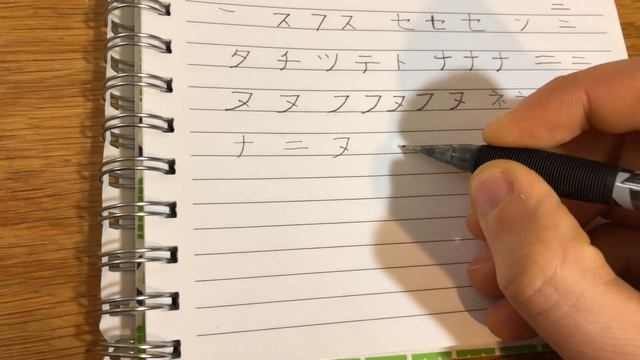 スフス セセセソ ニ
タチツテト ナナナ ニニ
ヌヌフフヌフヌ ネ
ナニヌ